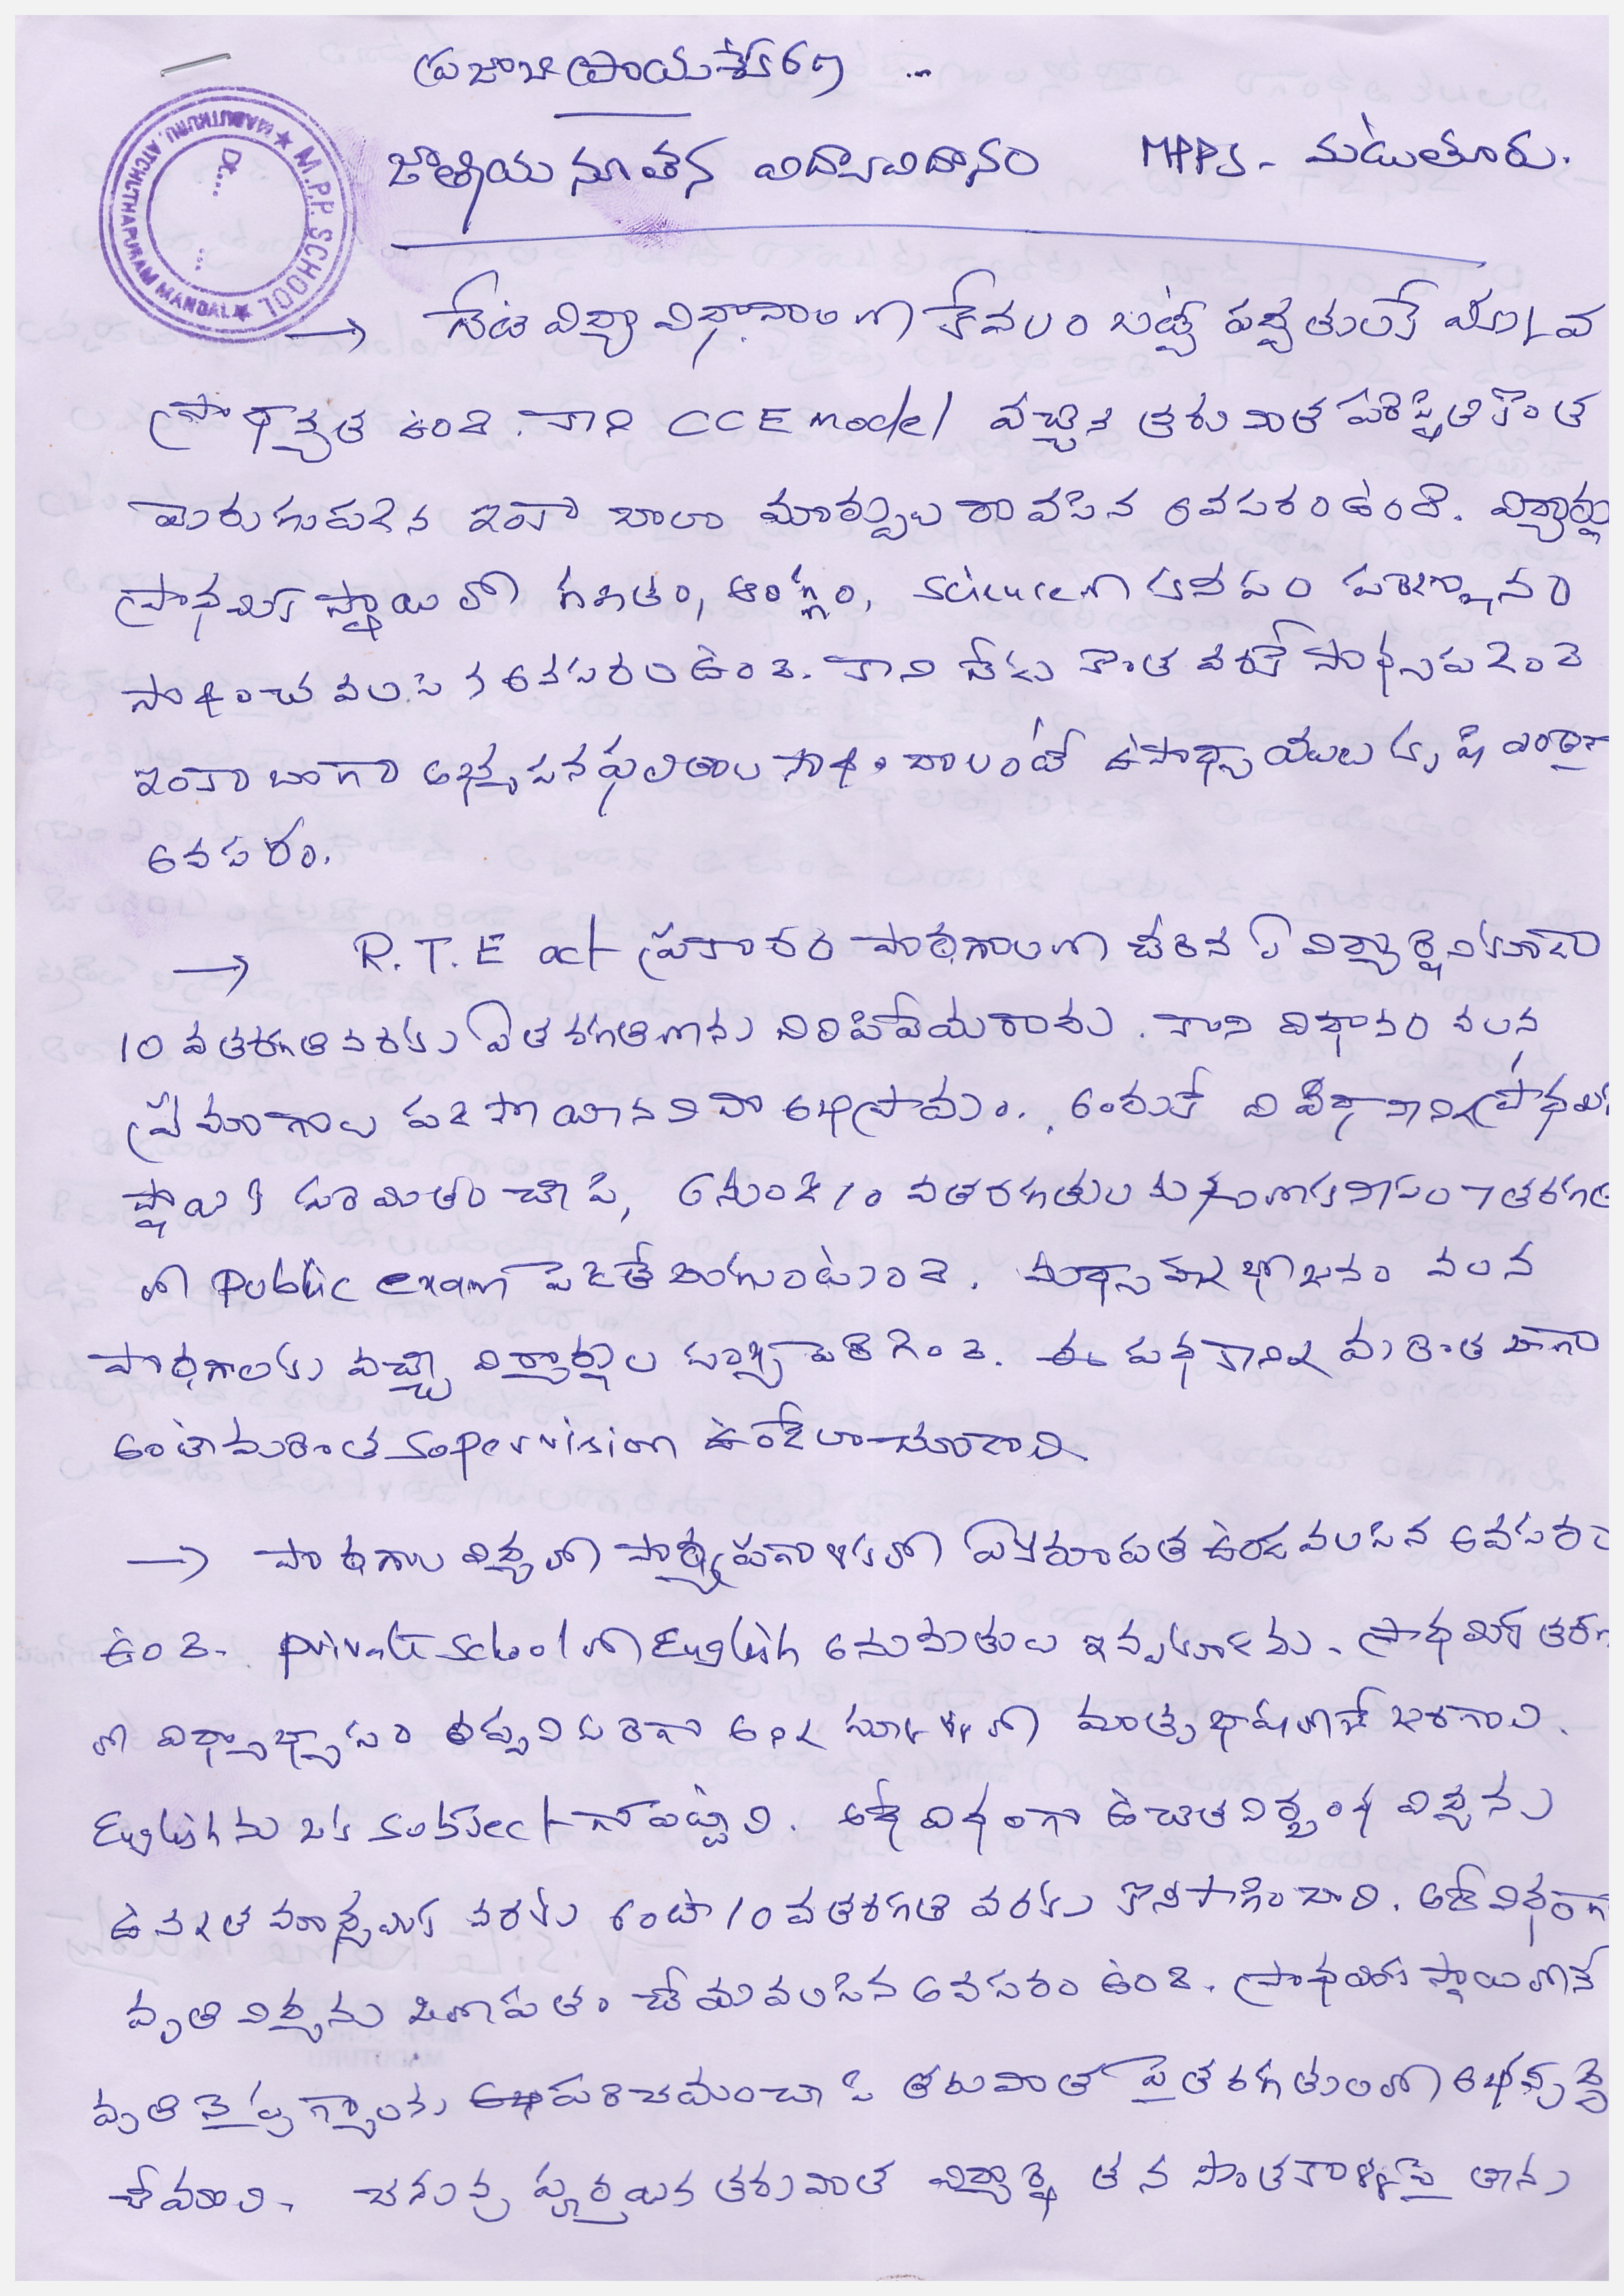 ప్రజాభిప్రాయసేకరణ
జాతీయ నూతన విద్యావిదానం MPPS - మడుతూరు.
M.P.P. SCHOOL ★ MADUTURU, ATCHUTHAPURAM MANDAL ★
Dt....
→ నేటి విద్యా విధానాలలో కేవలం బట్టీ పద్ధతులకే
ప్రాధాన్యత ఉంది. కాని CCE model వచ్చిన తరువాత పరిస్థితి కొంత
మెరుగుపడిన ఇంకా చాలా మార్పులు రావలసిన అవసరం ఉంది. విద్యార్థు
ప్రాథమిక స్థాయిలో గణితం, ఆంగ్లం, Science లో కనీసం పరిజ్ఞానం
సాధించవలసిన అవసరం ఉంది. కాని నేడు కొంత వరకే సాధ్యపడింది
ఇంకా బాగా అభ్యసన ఫలితాలు సాధించాలంటే ఉపాధ్యాయులు కృషి ఎంతో
అవసరం.
→ R.T.E act ప్రకారం పాఠశాలలో చేరిన ఏ విద్యార్థిని కూడా
10 వతరగతి వరకు ఏ తరగతిలోను నిలిపివేయరాదు. కాని విధానం వలన
ప్రమాణాలు పడిపోయినవి నా అభిప్రాయం. అందుకే ఆ విధానాన్ని ప్రాథమిక
స్థాయికి పరిమితం చేసి, 6 నుండి 10 వతరగతుల మధ్యలో కనీసం 7 తరగతి
లో public exam పెడితే బాగుంటుంది. మధ్యాహ్న భోజనం వలన
పాఠశాలకు వచ్చే విద్యార్థుల సంఖ్య పెరిగింది. ఈ పథకాన్ని మరింత బాగా
అంటే మరింత supervision ఉండేలా చూడాలి
→ పాఠశాల విద్యలో పాఠ్యప్రణాళికలో ఏకరూపత ఉండవలసిన అవసరం
ఉంది. private school లో English అనుమతులు ఇవ్వకూడదు. ప్రాథమిక తరగ
లో విద్యాభ్యాసం తప్పనిసరిగా అన్ని స్కూళ్ళలో మాతృభాషలోనే జరగాలి.
English ను ఒక subject గా పెట్టాలి. అదే విధంగా ఉచిత నిర్బంధ విద్యను
ఉన్నత మాధ్యమిక వరకు అంటే 10 వతరగతి వరకు కొనసాగించాలి. అదేవిధంగా
వృతి విద్యను బలోపేతం చేయవలసిన అవసరం ఉంది. ప్రాథమిక స్థాయిలోనే
వృతి నైపుణ్యాలను పరిచయం చేసి తరువాత పై తరగతులలో అభివృద్ధి
చేయాలి. చదువు పూర్తయిన తరువాత విద్యార్థి తన సొంతకాళ్ళపై తాను